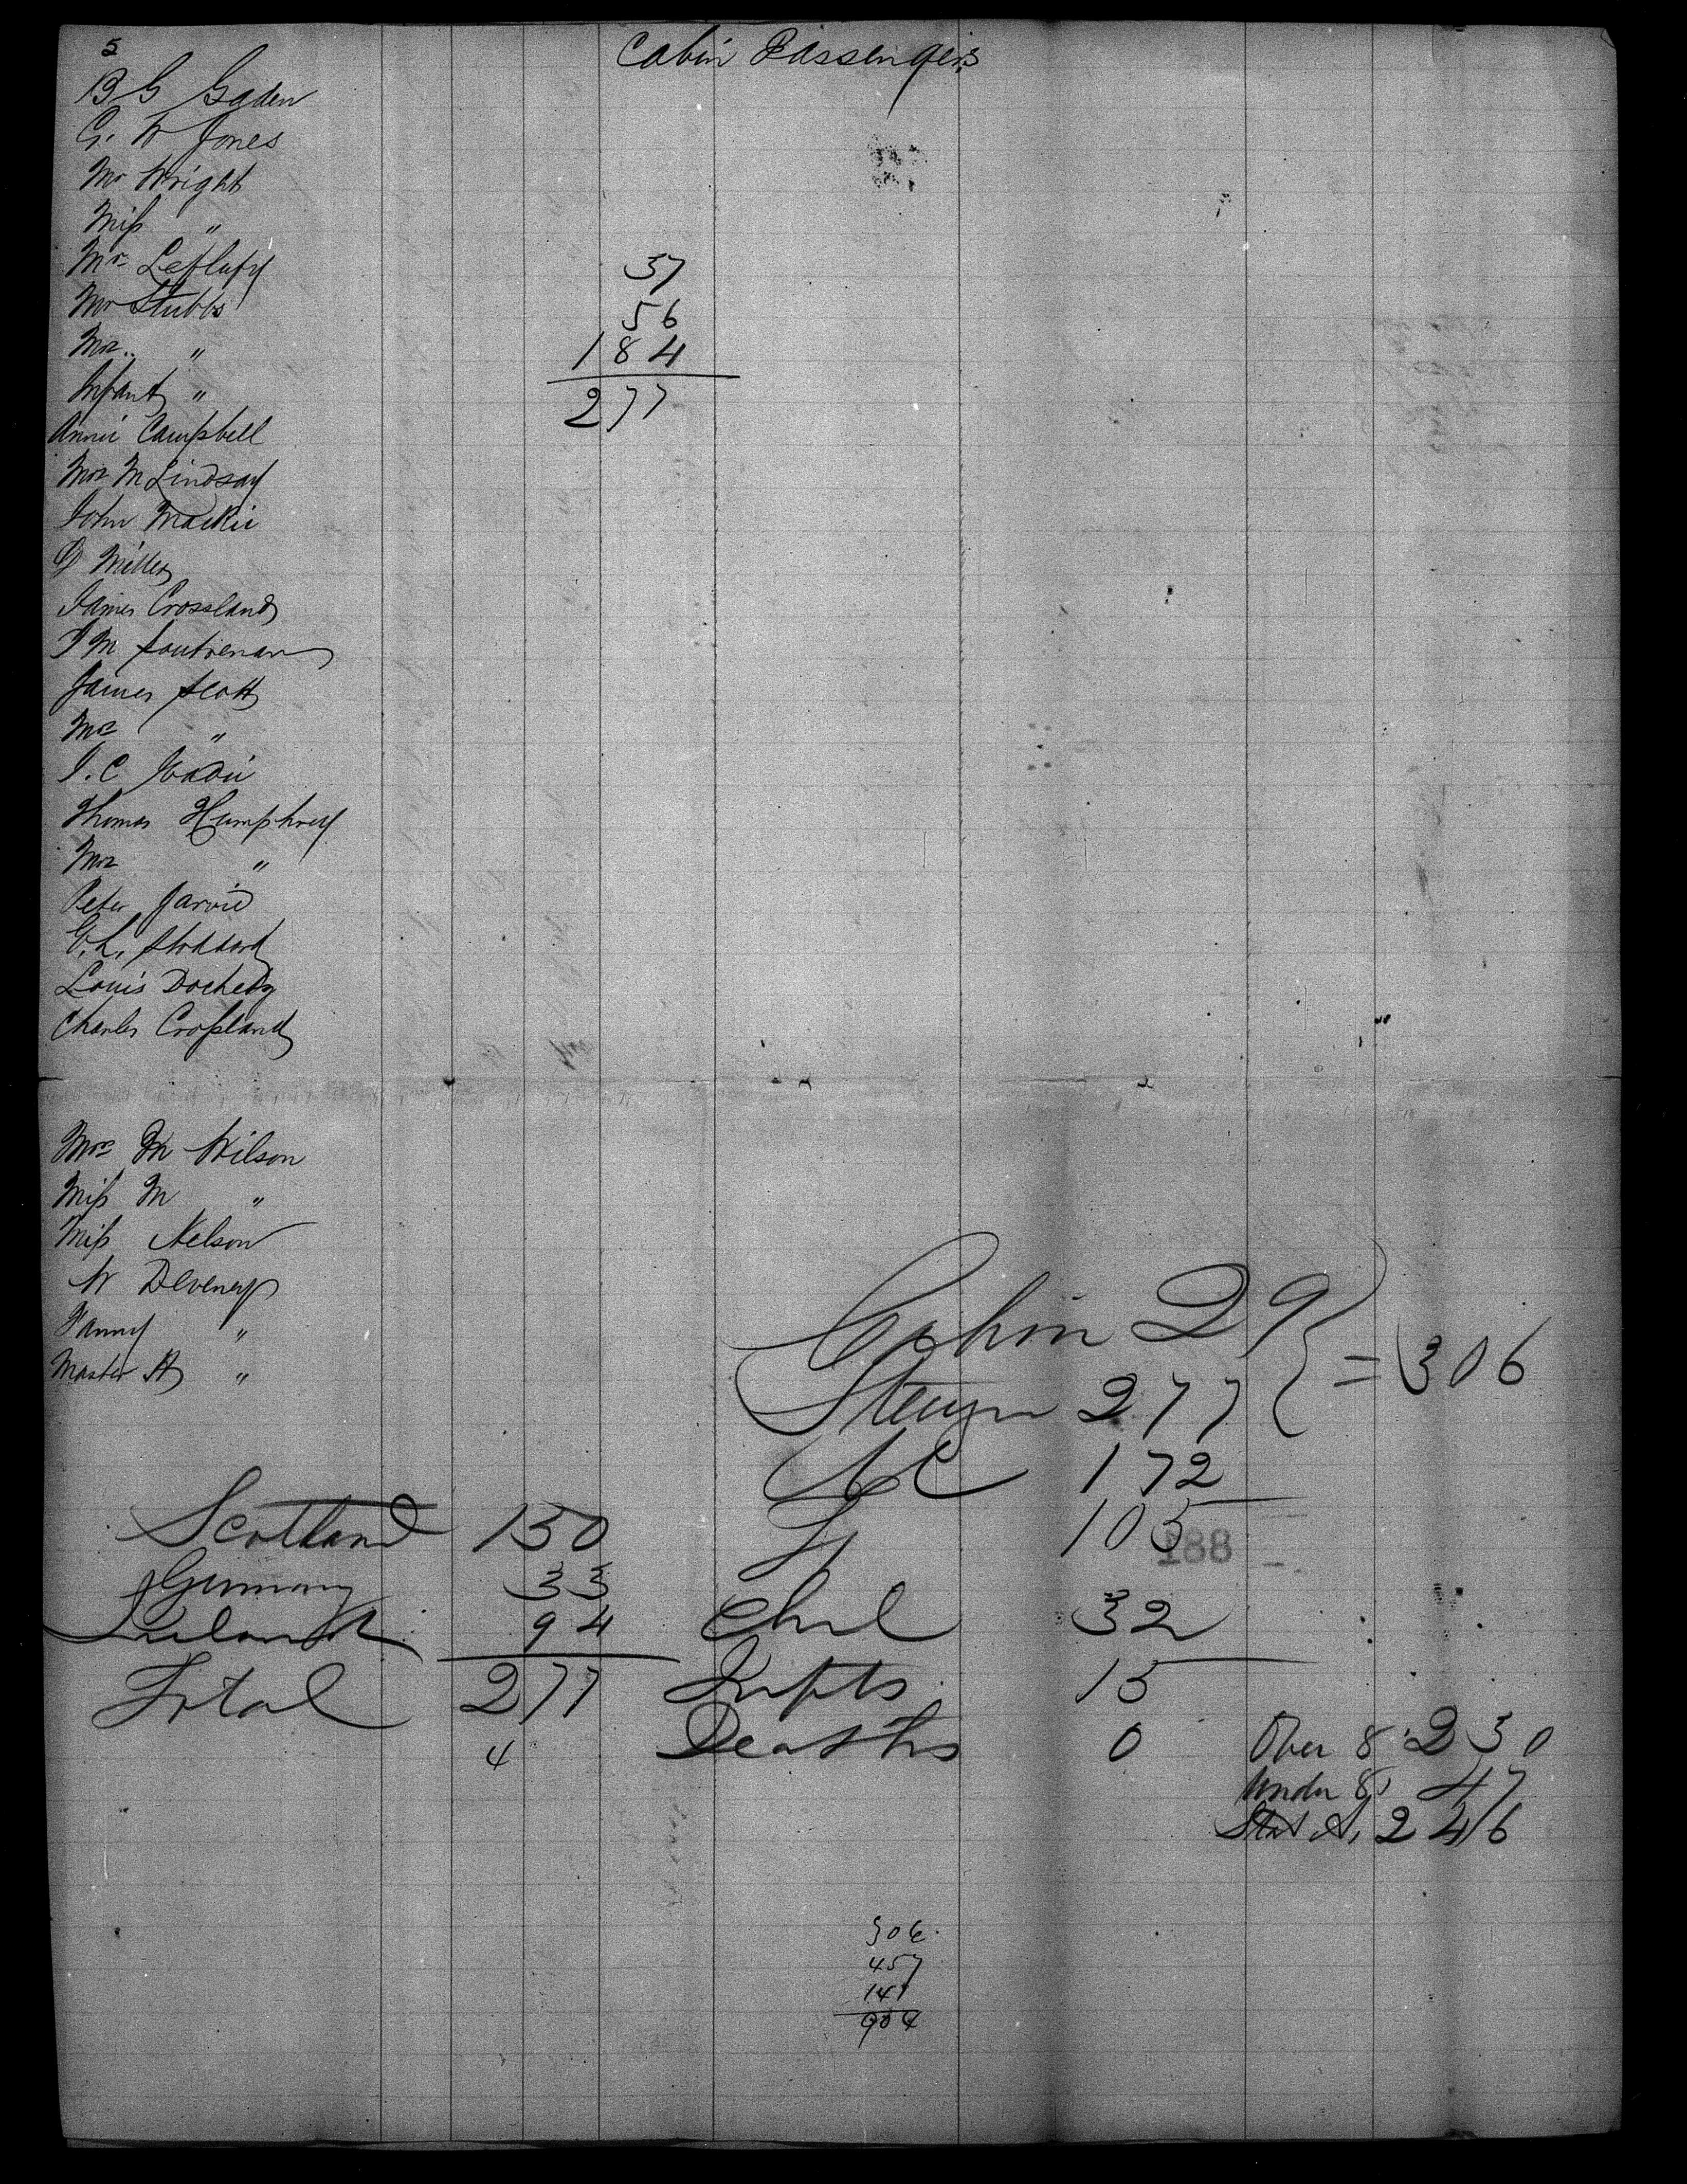 5
Cabin Passengers
B G Gaden
G. W Jones
Mr Wright
Miss "
Mr
Mr Stubbs
Mrs "
Infant "
Annie Campbell
Mrs M Lindsay
John Mackie
Miller
James Crossland
James Scott
Mrs "
Thomas Humphrey
Mrs "
Peter Jarvie
Stoddard
Louis Dochety
Charles Crossland
37
56
184
277
Mrs M Wilson
Miss M "
Miss Nelson
W Deveney
Fanny "
Master A "
Cabin 29
= 306
Steerge 277
M 172
F 105
188
Chil 32
Infts 15
Deaths 0
Scotland 150
Germany 33
Ireland 94
Total 277
4
Over 8 230
Under 8 47
Stat A, 246
306
457
141
904